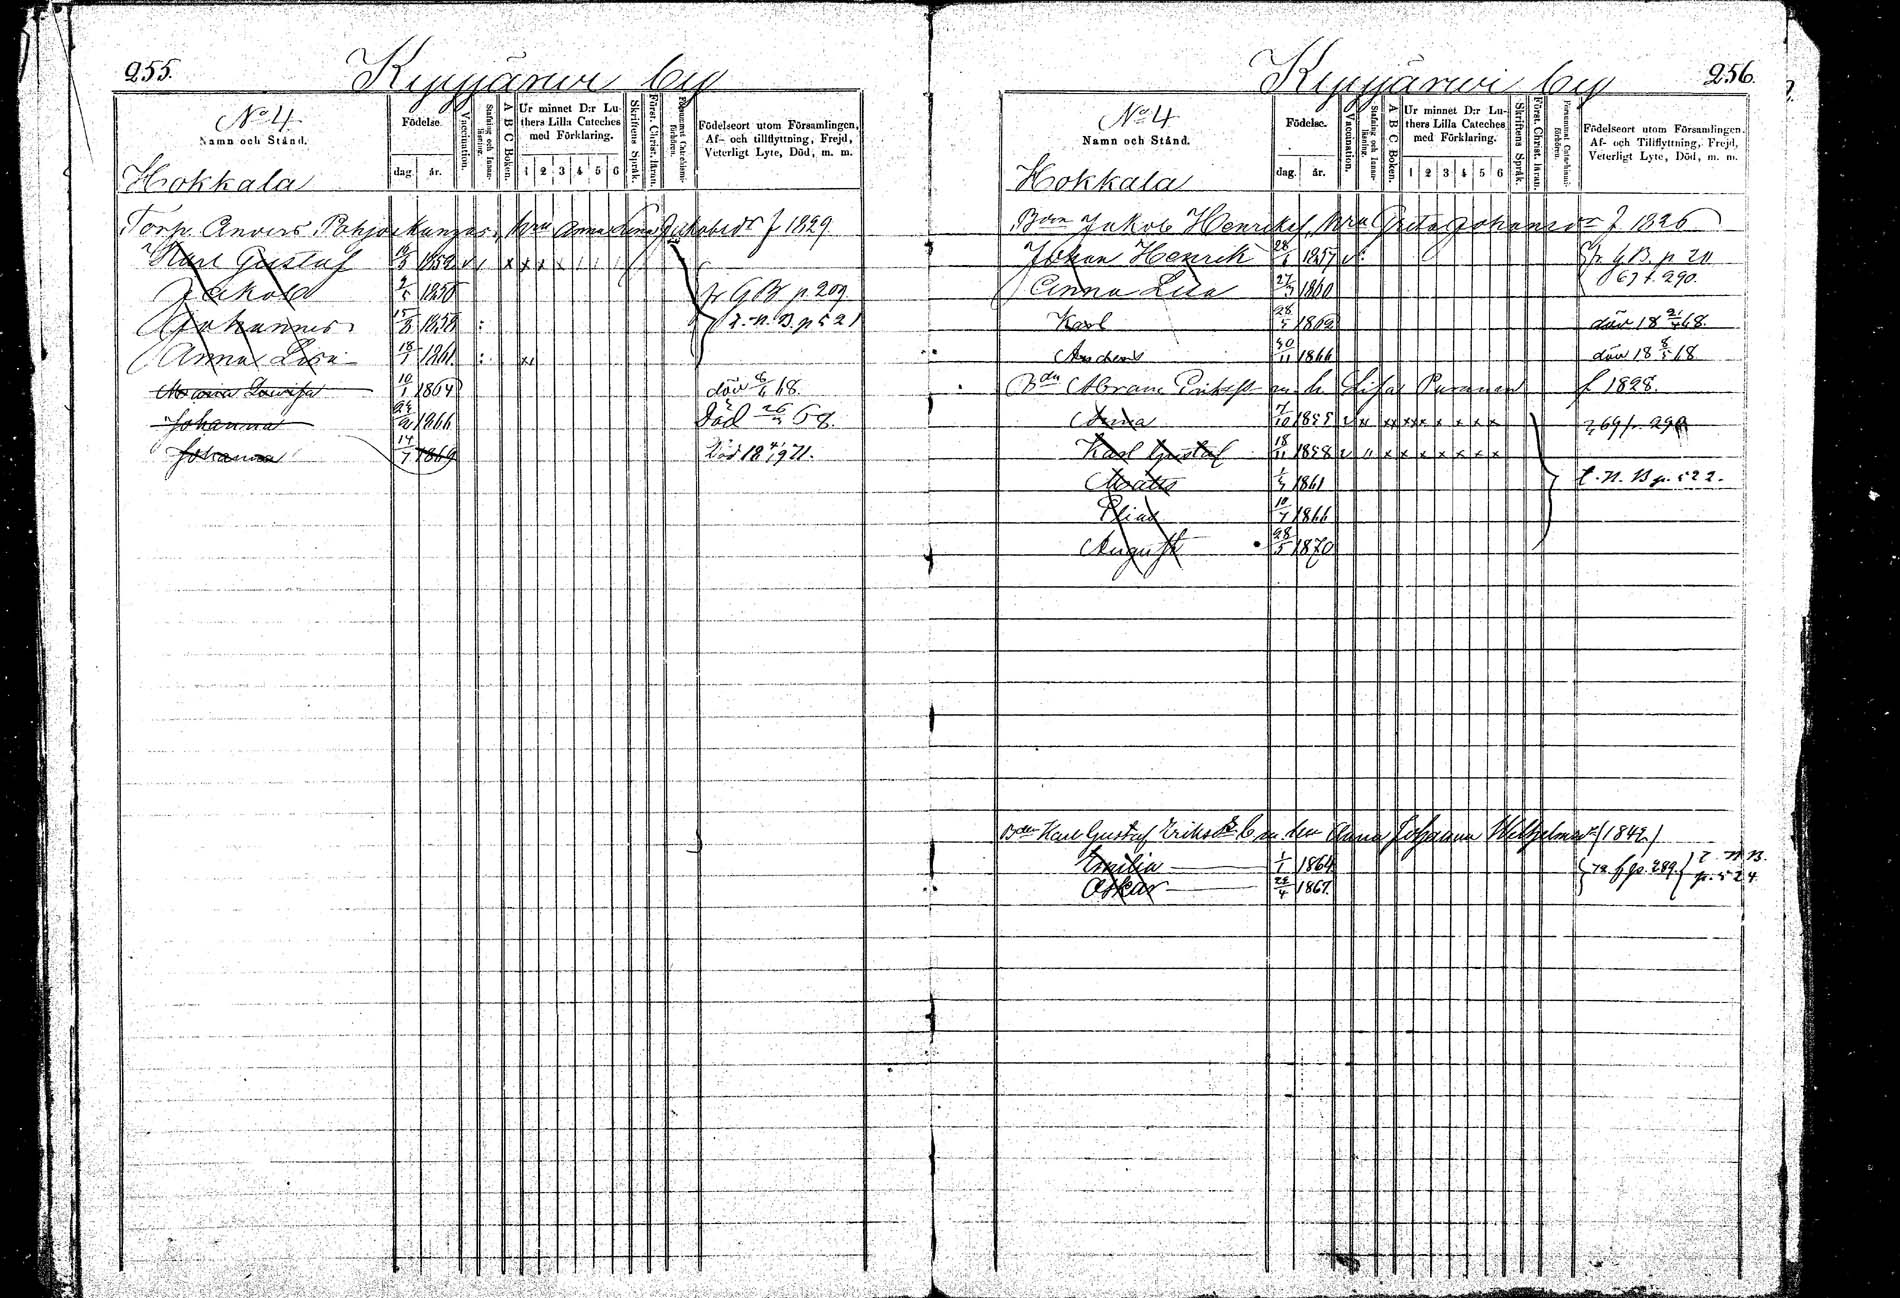 255.
Kyyjärwi by
No 4
Namn och Stånd.
Hokkala
Födelse.
dag. år.
Vaccination.
Stafning och Innanläsning.
A B C Boken.
Ur minnet D:r Luthers Lilla Cateches med Förklaring.
1 2 3 4 5 6
Skriftens Språk.
Först. Christ. Kun.
Försummat Catechismiförhören.
Födelseort utom Församlingen,
Af- och tillflyttning, Frejd,
Veterligt Lyte, Död, m. m.
Torp. Anders Pohjoiskangas, hru Anna Lena Jakobsdr f 1829
Karl Gustaf 1852 v
Jakob 2/5 1856 fr G B p. 209
Johannes 15/8 1858 : t. n. B. p 521
Anna Lisa 18/1 1861 :
Maria Lovisa 10/1 1864 död 8/6 68.
Johanna 1866 Död 68.
Johanna 14/7 1869 Död 18 71.
256.
Kyyjärwi by
No 4
Namn och Stånd.
Hokkala
Födelse.
dag. år.
Vaccination.
Stafning och Innanläsning.
A B C Boken.
Ur minnet D:r Luthers Lilla Cateches med Förklaring.
1 2 3 4 5 6
Skriftens Språk.
Först. Christ. Kun.
Försummat Catechismiförhören.
Födelseort utom Församlingen.
Af- och Tillflyttning, Frejd,
Veterligt Lyte, Död, m. m.
Jakob Henriks, hru Greta Johansdr f 1826
Johan Henrik 1857 v : fr G B. p 211
Anna Lisa 1860 67 t. 290.
Karl 28/5 1862 död 18 68.
Anders 30/11 1866 död 18 8/5 68
Bdn Abram Eriksn m. h. Lisa Puranen f 1828.
Anna 7/10 1855 v x x x x x x x x 69 t. 290
Karl Gustaf 18/11 1858 v " x x x x x x x
Matts 1861 t. n. B p. 522.
Elias 10/7 1866
August 28/5 1870
Bdn Karl Gustaf Eriks m. hu Anna Johanna Wilhelmsdr (1842)
Emilia 1/1 1864 72 f p. 289. t. n. B.
Oskar 1867. p. 524.